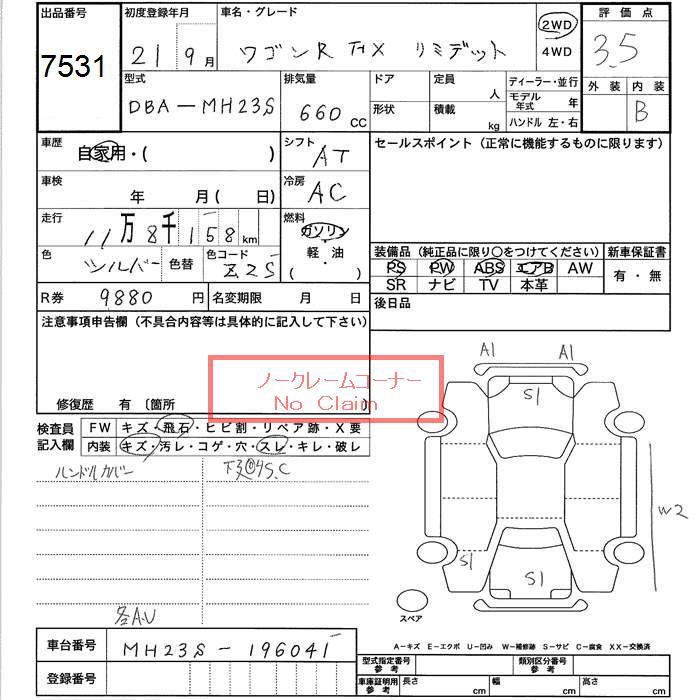 出品番号
7531
初度登録年月
21 9月
車名・グレード
ワゴンR FX リミテッド
2WD
4WD
評価点
3.5
型式
DBA-MH23S
排気量
660 CC
ドア
形状
定員 人
積載 kg
ディーラー・並行
モデル年式 年
ハンドル 左・右
外装
内装
B
車歴
自家用・( )
シフト
AT
セールスポイント (正常に機能するものに限ります)
車検
年 月( 日)
冷房
AC
走行
11万8千158km
燃料
ガソリン
軽・油
( )
色
シルバー
色替
色コード
Z2S
装備品 (純正品に限り〇をつけてください)
新車保証書
PS PW ABS エアB AW
SR ナビ TV 本革
有・無
R券
9880円
名変期限 月 日
後日品
注意事項申告欄 (不具合内容等は具体的に記入して下さい)
ノークレームコーナー
No Claim
修復歴 有 〔箇所
検査員記入欄
FW キズ・飛石・ヒビ割・リペア跡・X要
内装 キズ・汚レ・コゲ・穴・スレ・キレ・破レ
ハンドルカバー
S.C
各A.U
A1 A1
S1
W2
S1
S1
スペア
A-キズ E-エクボ U-凹み W-補修跡 S-サビ C-腐食 XX-交換済
車台番号
MH23S-196041
登録番号
型式指定番号
参考
類別区分番号
参考
車庫証明用
参考
長さ cm
幅 cm
高さ cm